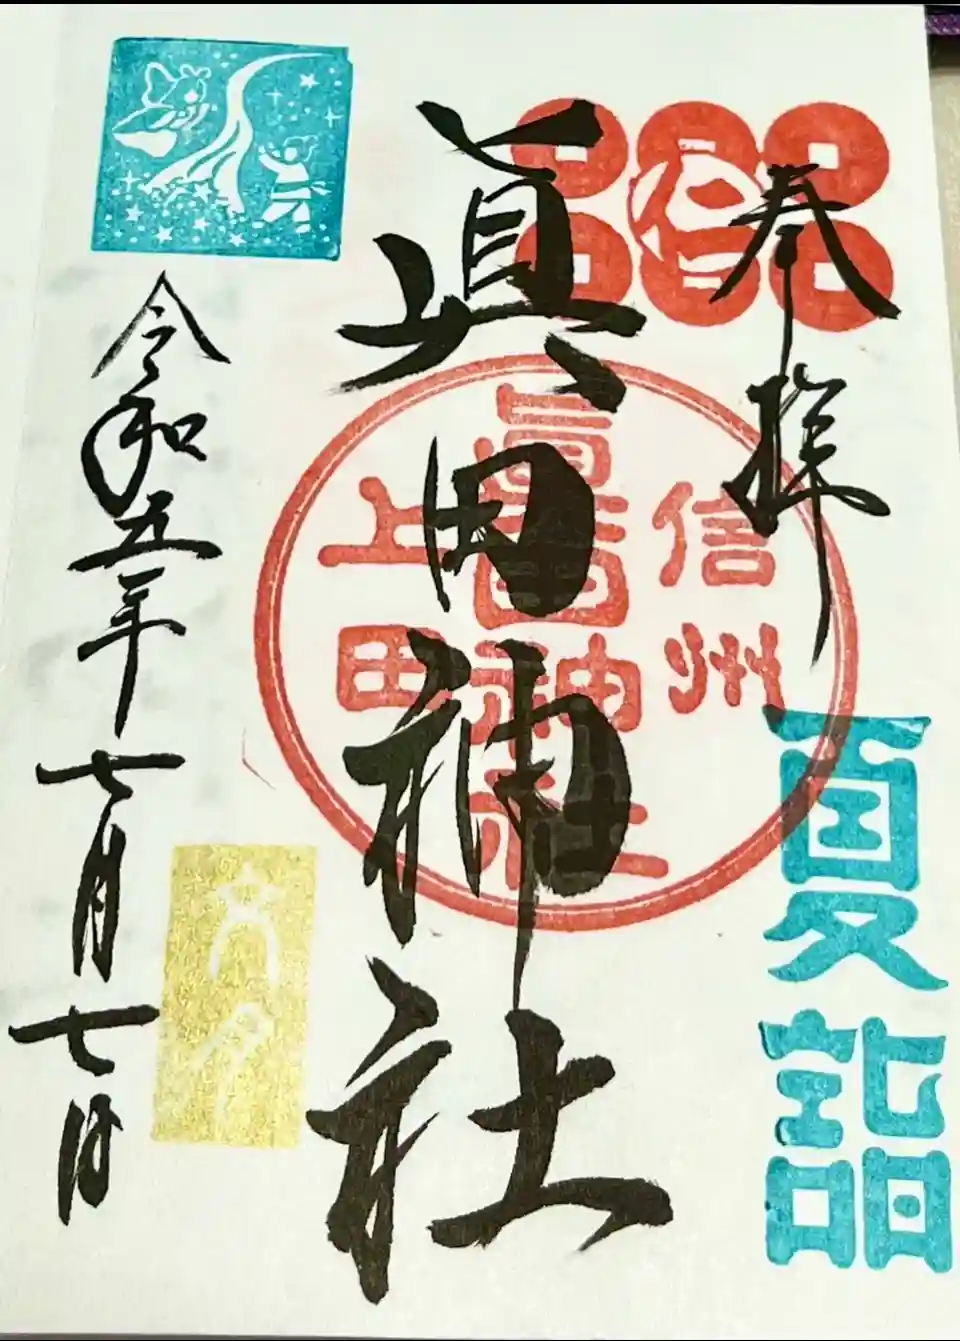 奉拝
信州
夏詣
眞田神社
眞田神社
上田
令和五年七月七日